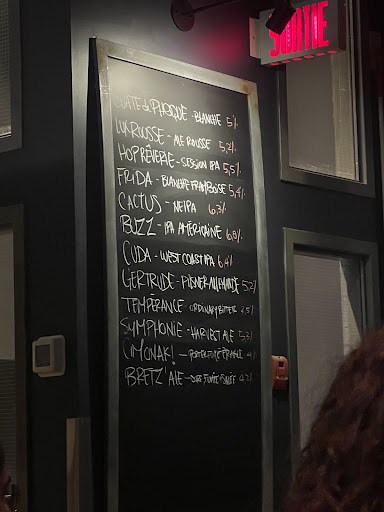 SORTIE
DE PHOQUE - BLANCHE 5%
LUXROUSSE - ALE ROUSSE 5,2%
HOP RÊVERIE - SESSION IPA 5,5%
FRIDA - BLANCHE FRAMBOISE 5,4%
CACTUS - NEIPA 6,3%
BUZZ - IPA AMÉRICAINE 6,8%
CUDA - WEST COAST IPA 6,4%
GERTRUDE - PILSNER ALLEMANDE 5,2%
TEMPÉRANCE ORDINARY BITTER 3,5%
SYMPHONIE - HARVEST ALE 5,3%
CIMONAK! - PORTER FUMÉ ÉRABLE
BRETZ'ALE -